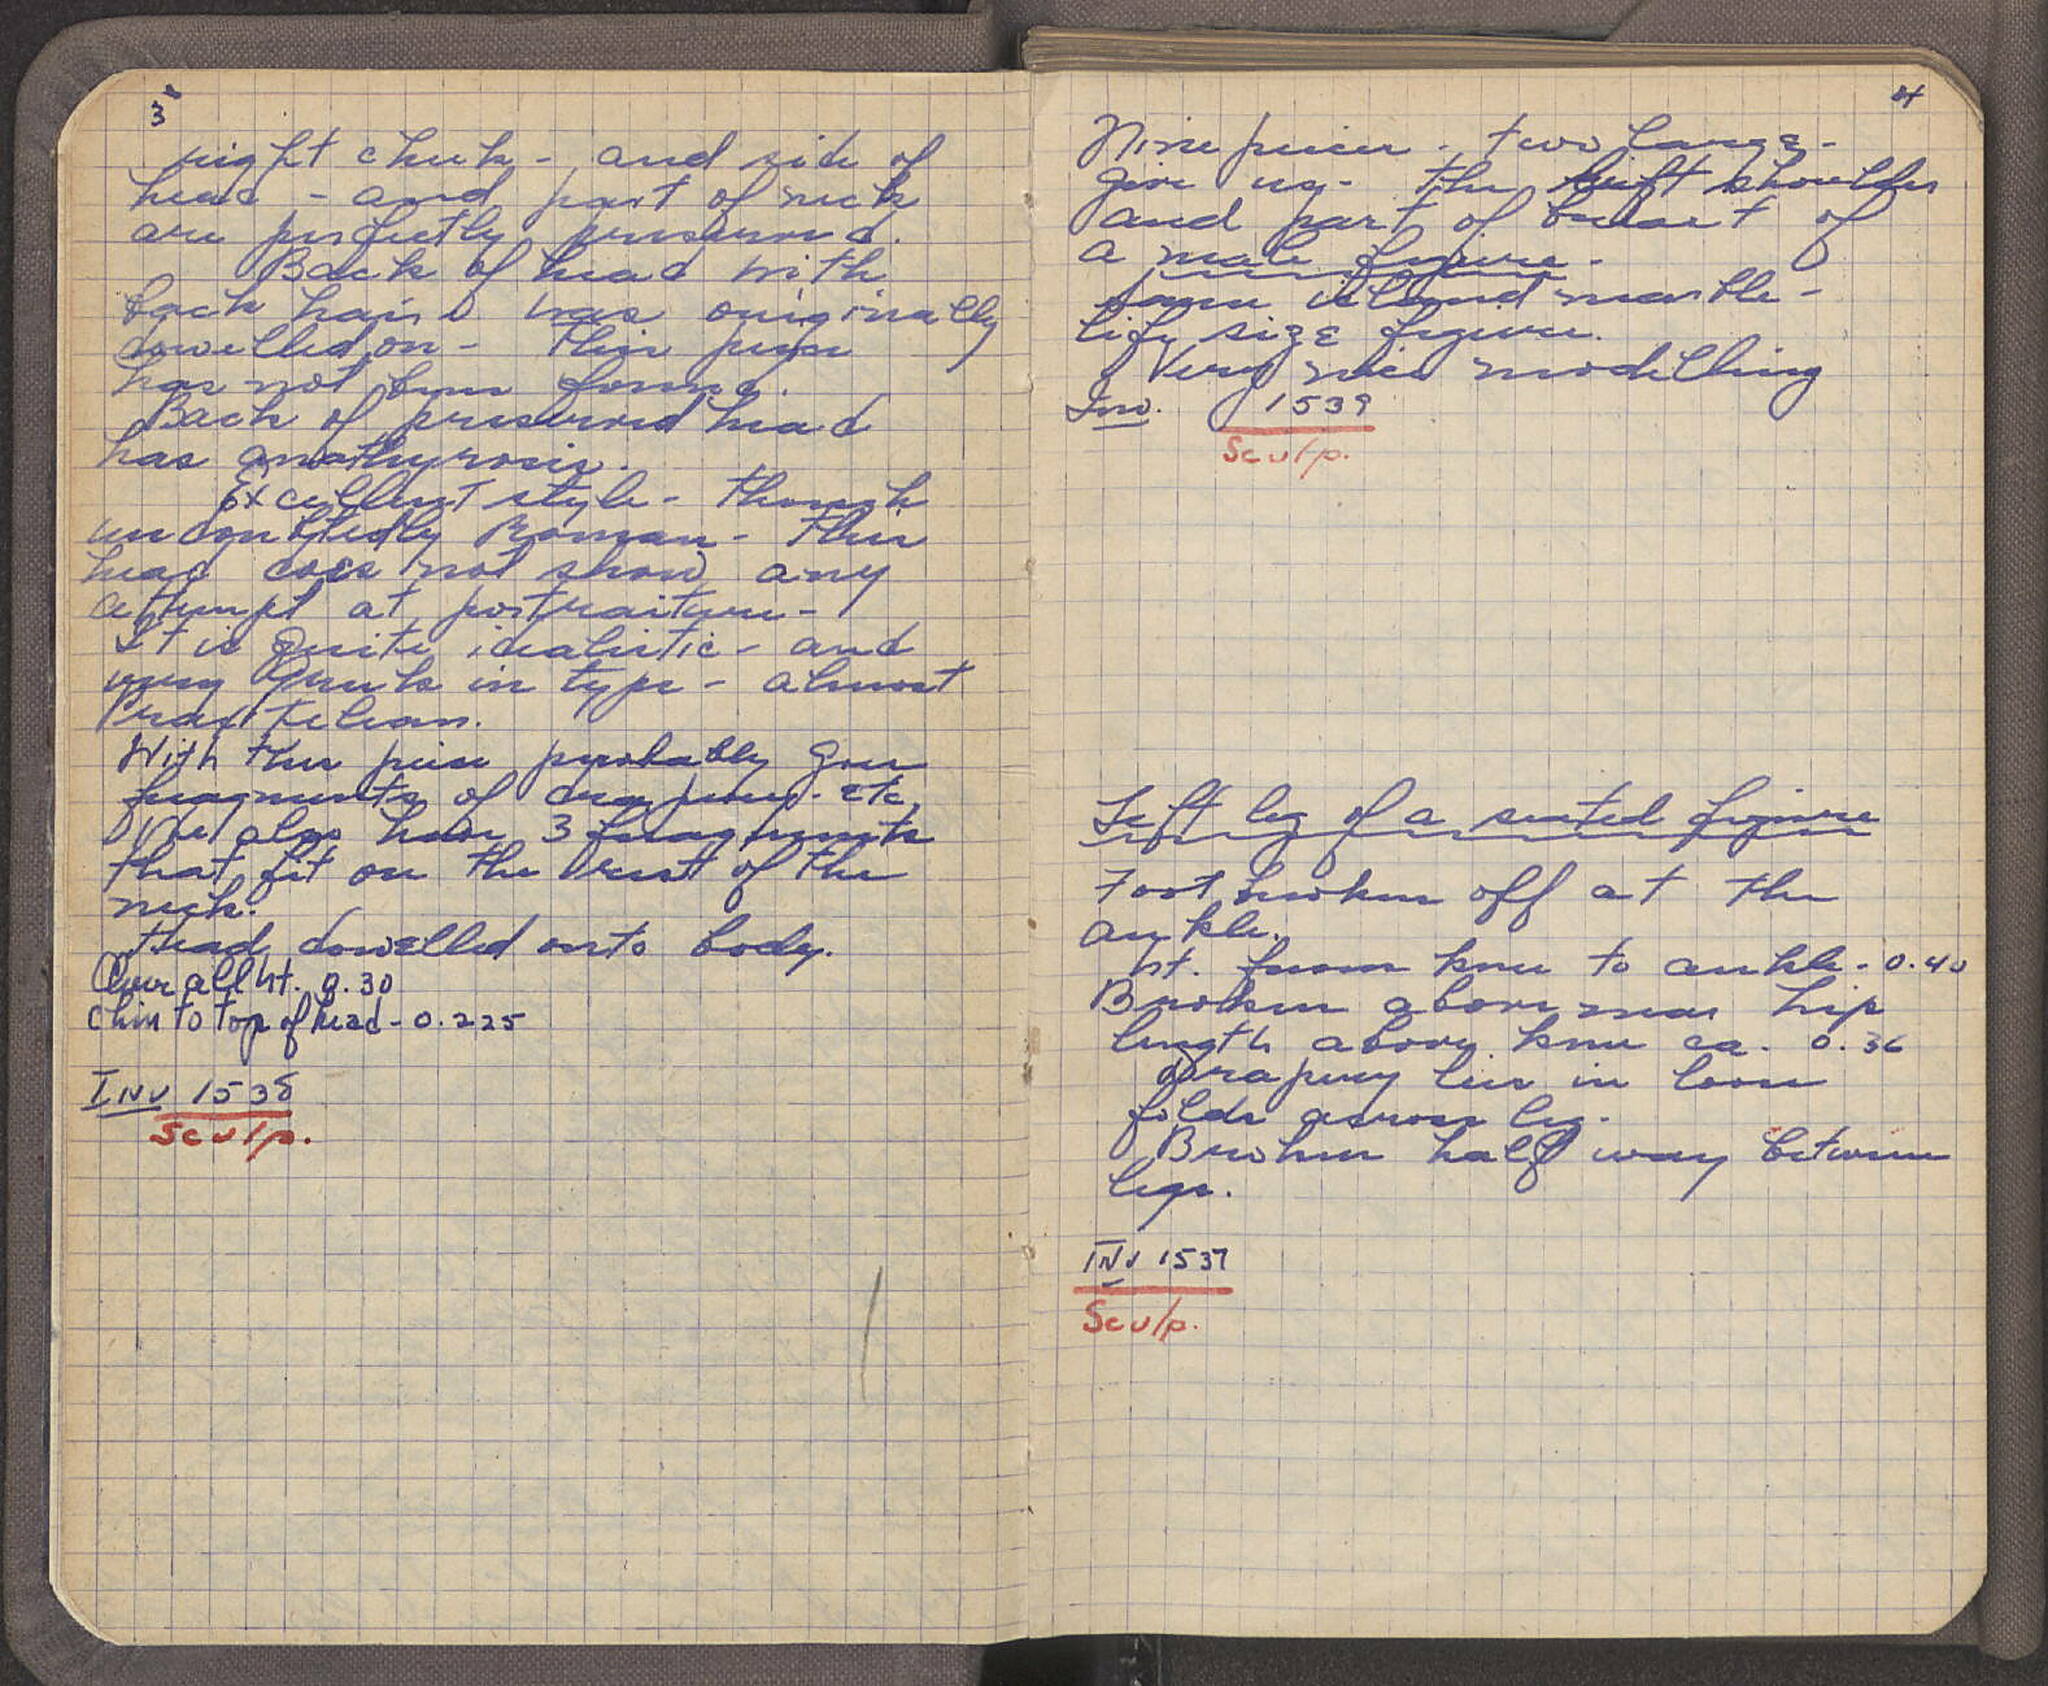 3
right cheek - and side of
head - and part of neck
are perfectly preserved.
Back of head with
back hair was originally
dowelled on - this piece
has not been found.
Back of preserved head
has anathyrosis.
Excellent style - though
undoubtedly Roman - this
head does not show any
attempt at portraiture -
It is quite idealistic - and
very Greek in type - almost
Praxitelean.
With this piece probably goes
fragments of drapery. etc.
We also have 3 fragments
that fit on the rest of the
neck.
Head dowelled onto body.
Over all ht. 0.30
Chin to top of head - 0.225
INV 1538
Sculp.
4
Nine pieces - two large -
give us - the left shoulder
and part of breast of
a male figure -
same island marble -
life size figure.
Very nice modelling
Inv. 1539
Sculp.
Left leg of a seated figure
Foot broken off at the
ankle.
ht. from knee to ankle - 0.40
Broken above near hip
length above knee ca. 0.36
Drapery lies in loose
folds across leg.
Broken half way between
legs.
INV 1537
Sculp.